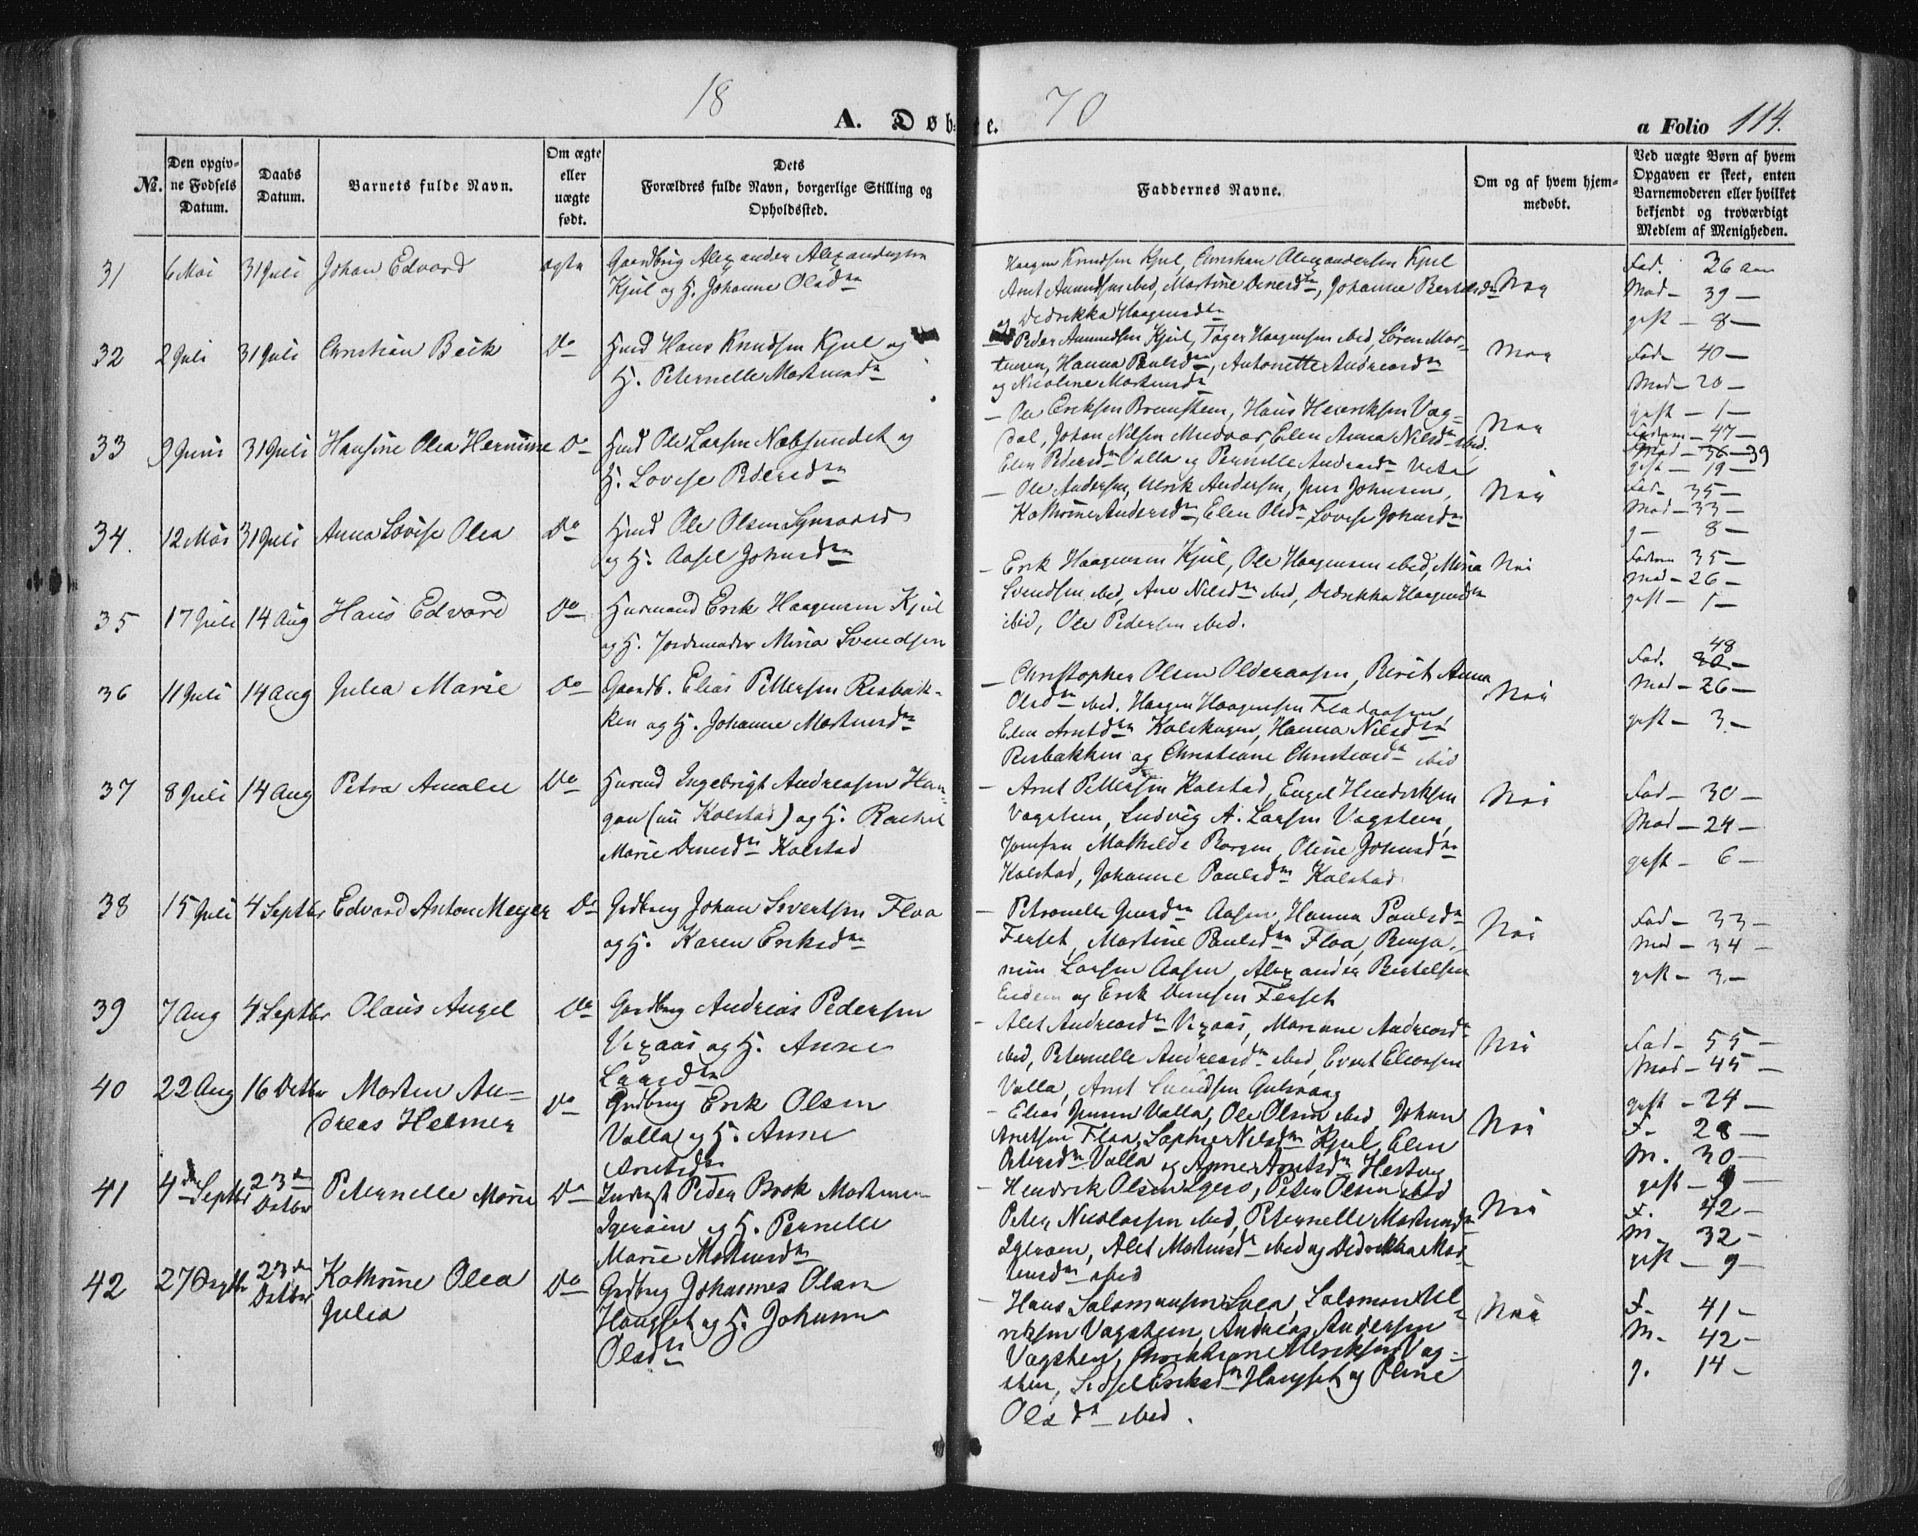 18 70
A. Døbte.
a Folio 114.
No.
Den opgiv-
ne Fødsels
Datum.
Daabs
Datum.
Barnets fulde Navn.
Om ægte
eller
uægte
født.
Dets
Forældres fulde Navn, borgerlige Stilling og
Opholdssted.
Faddernes Navne.
Om og af hvem hjem-
medøbt.
Ved uægte Børn af hvem
Opgaven er skeet, enten
Barnemoderen eller hvilket
bekjendt og troværdigt
Medlem af Menigheden.
31 6 Mai 31 Juli Johan Edvard ægte
Gaardbrug Alexander Alexandersen
Kjul og H. Johanne Olsdtr
Haagen Knudsen Kjul, Christian Alexandersen Kjul
Arnt Amundsen ibid, Martine Densdtr, Johanne
og Dedrikka Haagensdtr
Nei
Fad. 36 aar
Mod - 39 -
gift - 8 -
32 2 Juli 31 Juli Christian Beck Do
Husmd Hans Knudsen Kjul og
H. Peternelle Mortensdtr
Peder Amundsen Kjul, Haagensen ibid, Søren Mor-
tensen, Hanna Paulsdtr, Antonette Andreasdtr
og Nicoline Mortensdtr
Nei
Fad - 40 -
Mod - 20 -
gift - 1 -
33 9 Juni 31 Juli Hansine Olea Hermine Do
Husmd Ole Larsen Næbsundet og
H. Lovise Pedersdtr
- Ole Eriksen Hans Henriksen Væg-
Johan Nilsen Elen Anna Nilsdtr ibid.
Elen Pedersdtr Valla og Pernelle Andreasdtr
Nei
Fadern - 47 -
Mod - 36 - 39
gift - 19 -
34. 12 Mai 31 Juli Anna Lovise Olea Do
Husmd Ole Olsen
og H. Aasel Johnsdtr
- Ole Andersen, Ulrik Andersen, Jens Johnsen,
Kathrine Andersdtr, Elen Olsdtr, Lovise Johnsdtr
Nei
Fad - 35 -
Mod - 33 -
g - 8 -
35 17 Juli 14 Aug Hans Edvard Do
Husmand Erik Haagensen Kjul
og H. Jordemoder Mina Svendsen
- Erik Haagensen Kjul, Ole Haagensen ibid, Mina
Svendsen ibid, Ane Nilsdtr ibid, Dedrikka Haagensdtr
ibid, Ole Pedersen ibid.
Nei
Fadern 35 -
Mod - 26 -
gift - 1 -
36 11 Juli 14 Aug Julia Marie Do
Gaardb. Elias Pettersen Risbak-
ken og H. Johanne Mortensdtr
- Christopher Olsen Olderaasen, Berit Anna
Olsdtr ibid. Haagen Haagensen
Elen Arntdtr Kalskagen, Hanna Nilsdtr
Risbakken og Christiane Christiansdtr ibid
Nei
48
Fad.
Mod - 26 -
gift - 3 -
37 8 Juli 14 Aug Petra Amalie Do
Husmd Ingebrigt Andreassen
(nu Kolstad) og H. Rachel
Marie Densdtr Kolstad
- Arnt Pettersen Kolstad, Engel Hendriksen
Vægsten, Ludvig A. Larsen Vægsten,
Jomfru Mathilde Borgen, Oline Johnsdtr
Kolstad, Johanne Paulsdtr Kolstad
Nei
Fad - 30 -
Mod - 24 -
gift - 6 -
38 15 Juli 4 Septbr Edvard Anton Meyer Do
Grdbrug Johan Sivertsen Floa
og H. Karen Eriksdtr
- Petronelle Jensdtr Aasen, Hanna Paulsdtr
Ferset, Martine Paulsdtr Floa, Benja-
min Larsen Aasen, Alexander Bertelsen
og Erik Densen Ferset
Nei
Fad - 33 -
Mod - 34 -
gift - 3. -
39 7 Aug 4 Septbr Olaus Angel Do
Grdbrug Andreas Pedersen
Vigaas og H. Anne
Larsdtr
- Alet Andreasdtr Vigaas, Mariane Andreasdtr
ibid, Peternelle Andreasdtr ibid, Evert Eliassen
Valla, Arnt Svendsen
Nei
Fad - 55 -
Mod - 45 -
gift - 24 -
40 22 Aug 16 Octbr Morten An-
dreas Helmer Do
Grdbrug Erik Olsen
Valla og H. Anne
Arntsdtr
- Elias Jensen Valla, Ole Olsen ibid Johan
Arntsen Floa, Sophie Nilsdtr Kjul, Elen
Petersdtr Valla og Anne Arntsdtr
Nei
F - 28 -
M. 30 -
gift - 9 -
41 4de Septbr 23de
Octbr Peternelle Marie Do
Indergst Peder Brok Mortensen
Igerøen og H. Pernelle
Marie Mortensdtr
- Hendrik Olsen Igerø, Peter Olsen ibid
Peter Nicolaisen ibid, Peternelle Mortensdtr
Igerøen, Alet Mortensdtr ibid og Dedrikka Mor-
tensdtr ibid
Nei
F. 42 -
M. 32 -
gift - 9 -
42 27 23de
Octbr Kathrine Olea
Julia Do
Grdbrug Johannes Olsen
Haugset og H. Johanna
Olsdtr
- Hans Salomonsen Salomon Ul-
riksen Vægsten, Andreas Andersen
Vægsten, Ulriksen Væg-
sten, Sidsel Eriksdtr Haugset og Oline
Olsdtr ibid.
Nei
F - 41 -
M. 42 -
g. 14 -